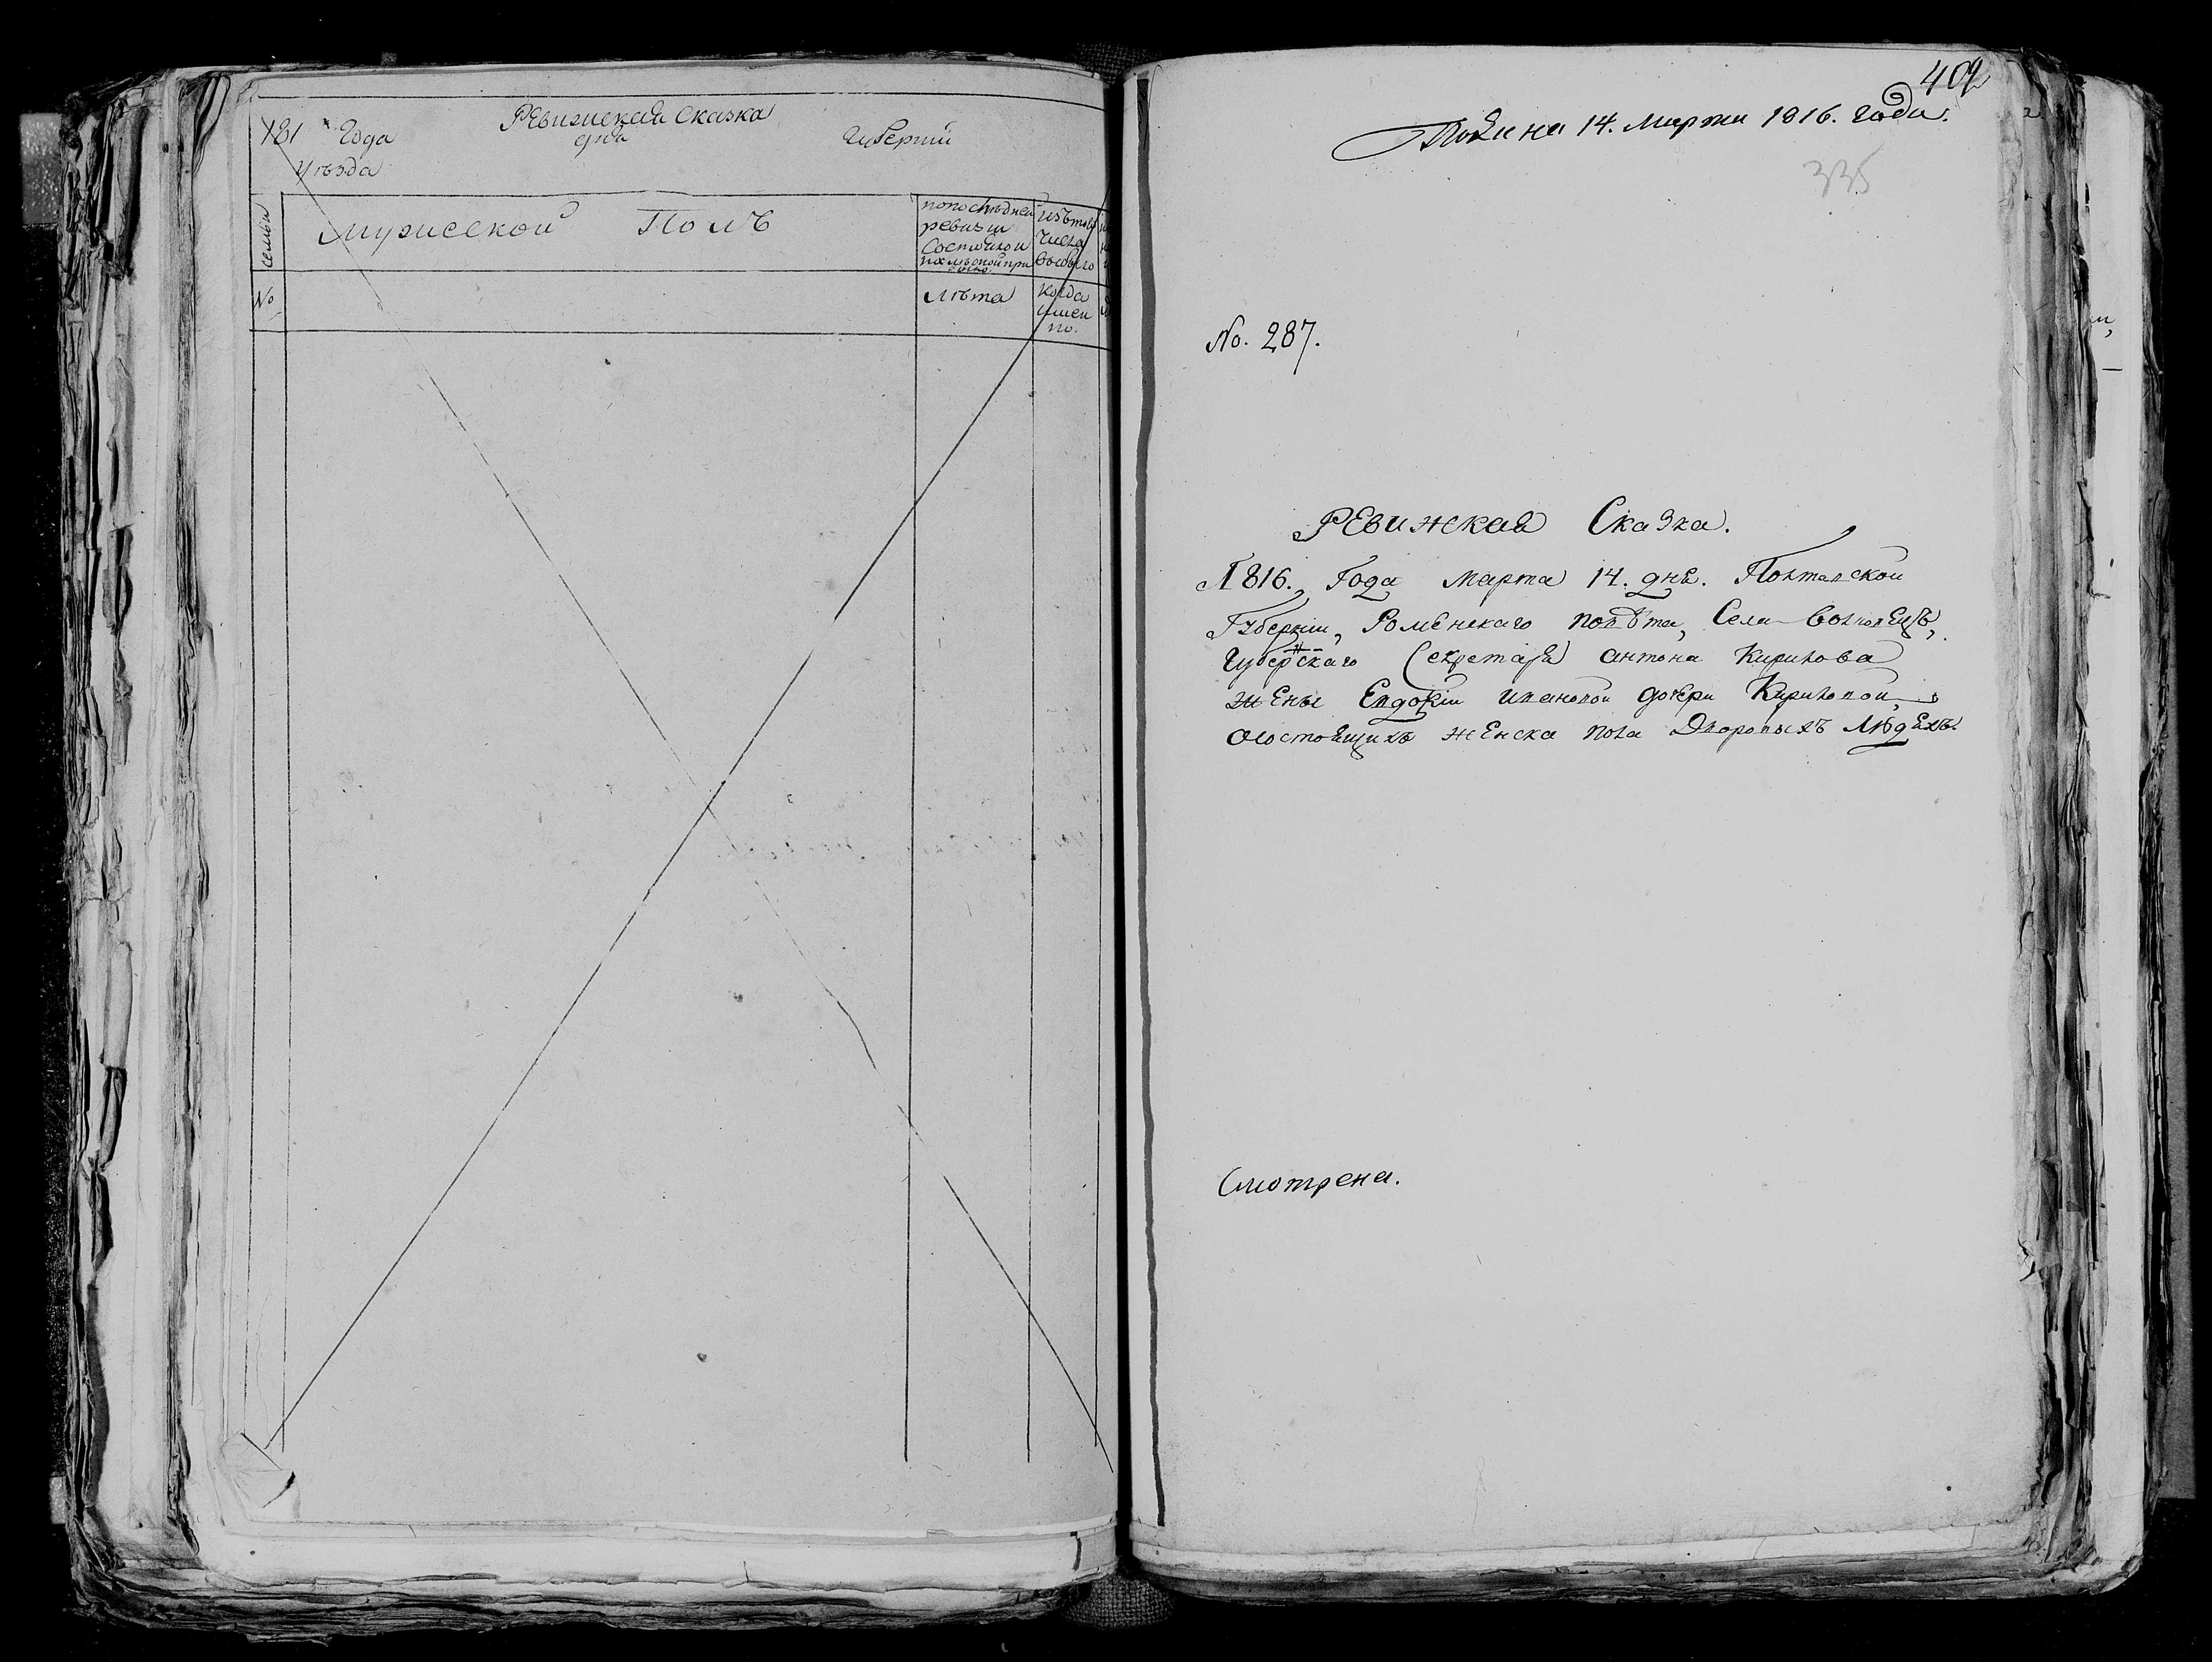 Ревижская Сказка
181 Года дня Губерніи
Уѣзда
семьи
Мужеской Полъ
по последней
ревизіи
Состояло и
изъ того
числа
выбыло
№
Лѣта
когда
имен
но.
409
Подана 14. Марта 1816. года.
335
No. 287.
Ревижская Сказка.
1816. Года Марта 14. дня. Полтавской
Губерніи, Роменскаго повѣта, Села Волковецъ,
Губернскаго Секретаря антона Кирилова
жены Евдокіи ивановой дочери Кириловой,
о состоящихъ женска пола Дворовыхъ Людяхъ.
Смотрена.